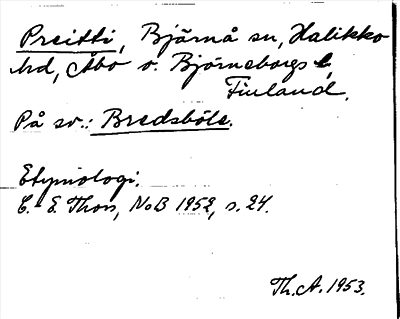 Preitti, Bjärnå sn, Halikko
hd, Åbo o. Björneborgs l,
Finland.
På sv.: Bredsböle.
Etymologi:
C. E. Thors, NoB 1952, s. 24.
Th. A. 1953.